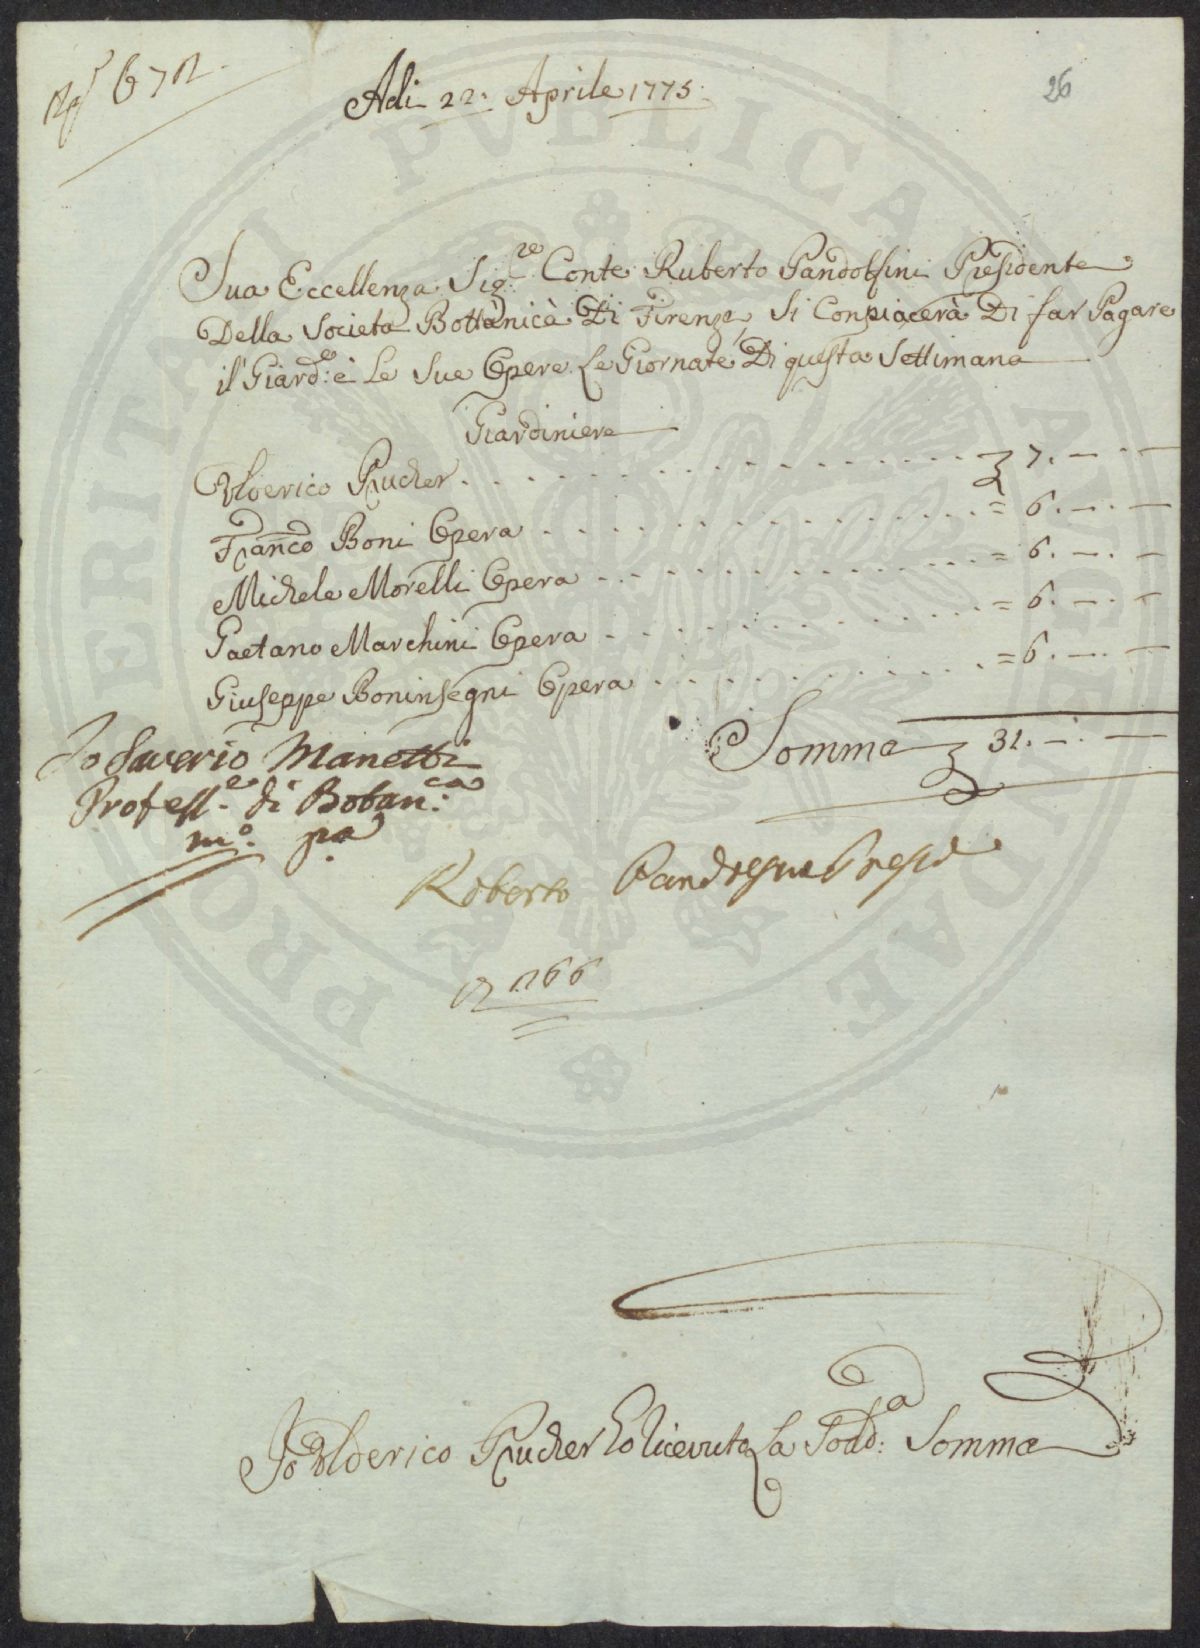 26
Adi 22. Aprile 1775.
Sua Eccellenza Sig:re Conte Ruberto Pandolfini Presidente
Della Societa Bottanica Di Firenze, Si Conpiacerà Di far Pagare
il Giard:e è Le Sue Opere Le Giornate Di questa Settimana
Giardiniere
Ulderico Prucher 7. — . —
Franco Boni Opera = 6. — . —
Michele Morelli Opera = 6. — . —
Gaetano Marchini Opera = 6. — . —
Giuseppe Boninsegni Opera = 6. — . —
Somma 31. — . —
Io Saverio Manetti
Profess.e di Botan:ca
mo. pa
Roberto Pandolfini Presid
Io Ulderico Prucher ho Ricevuto La Sodd:a Somma
PROSPERITATI PVBLICAE AVGENDAE